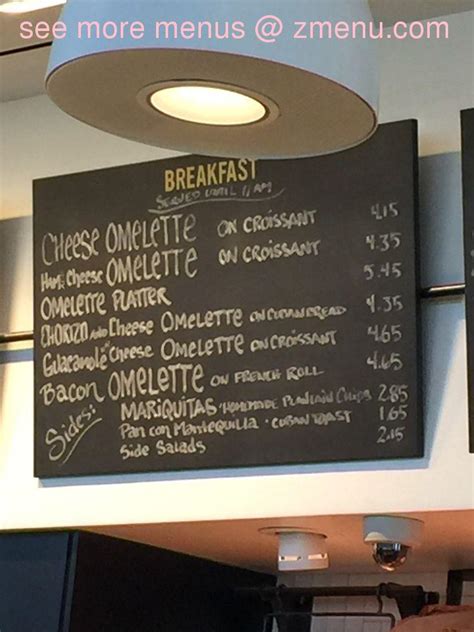 see more menus @ zmenu.com
BREAKFAST
SERVED UNTIL 11 AM
CHEESE OMELETTE ON CROISSANT 4.15
HAM & CHEESE OMELETTE ON CROISSANT 4.35
OMELETTE PLATTER 5.45
CHORIZO AND CHEESE OMELETTE ON CUBAN BREAD 4.35
GUACAMOLE CHEESE OMELETTE ON CROISSANT 4.65
BACON OMELETTE ON FRENCH ROLL 4.65
Sides:
MARIQUITAS · HOMEMADE PLANTAIN CHIPS 2.85
PAN CON MANTEQUILLA · CUBAN TOAST 1.65
SIDE SALADS 2.15